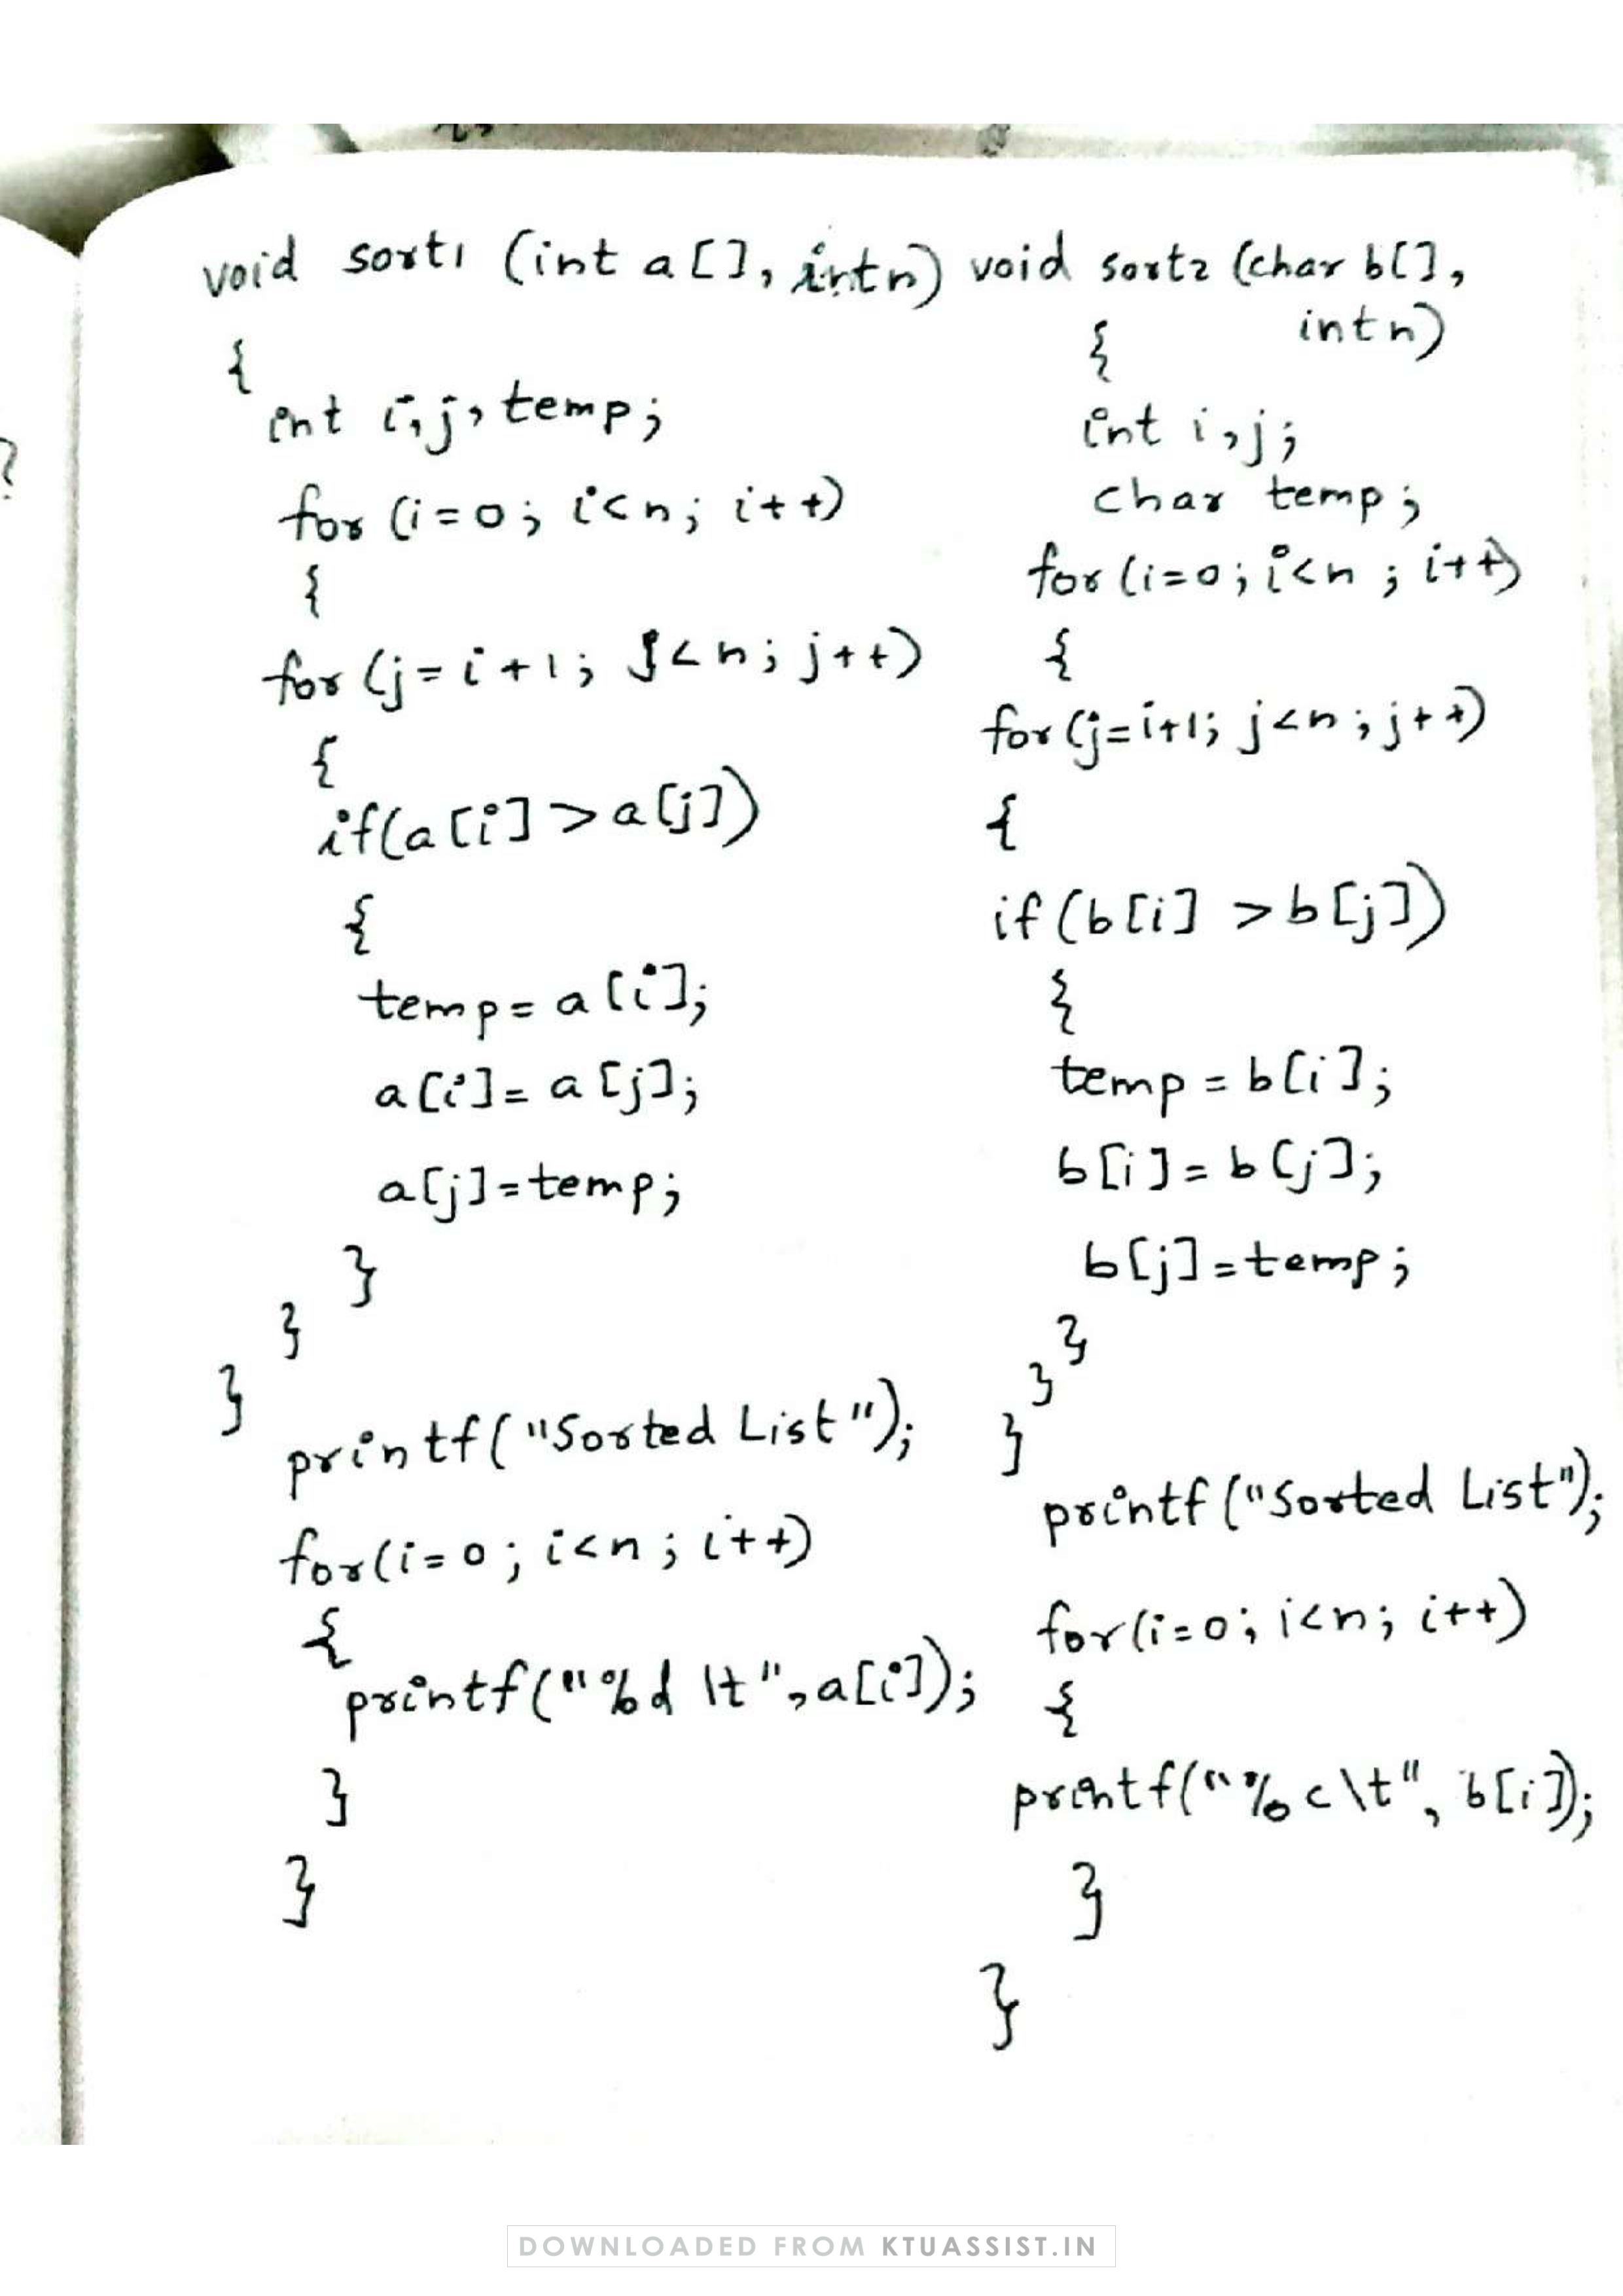 void sort1 (int a[], int n)
{
int i,j, temp;
for (i=0; i<n; i++)
{
for (j=i+1; j<n; j++)
{
if(a[i]>a[j])
{
temp= a[i];
a[i]= a[j];
a[j]=temp;
}
}
}
printf("Sorted List");
for(i=0; i<n; i++)
{
printf("%d \t", a[i]);
}
}
void sort2 (char b[],
int n)
{
int i,j;
char temp;
for (i=0; i<n; i++)
{
for (j=i+1; j<n; j++)
{
if (b[i] >b[j])
{
temp = b[i];
b[i]=b[j];
b[j]=temp;
}
}
}
printf("Sorted List");
for(i=0; i<n; i++)
{
printf("%c\t", b[i]);
}
}
?
DOWNLOADED FROM KTUASSIST.IN